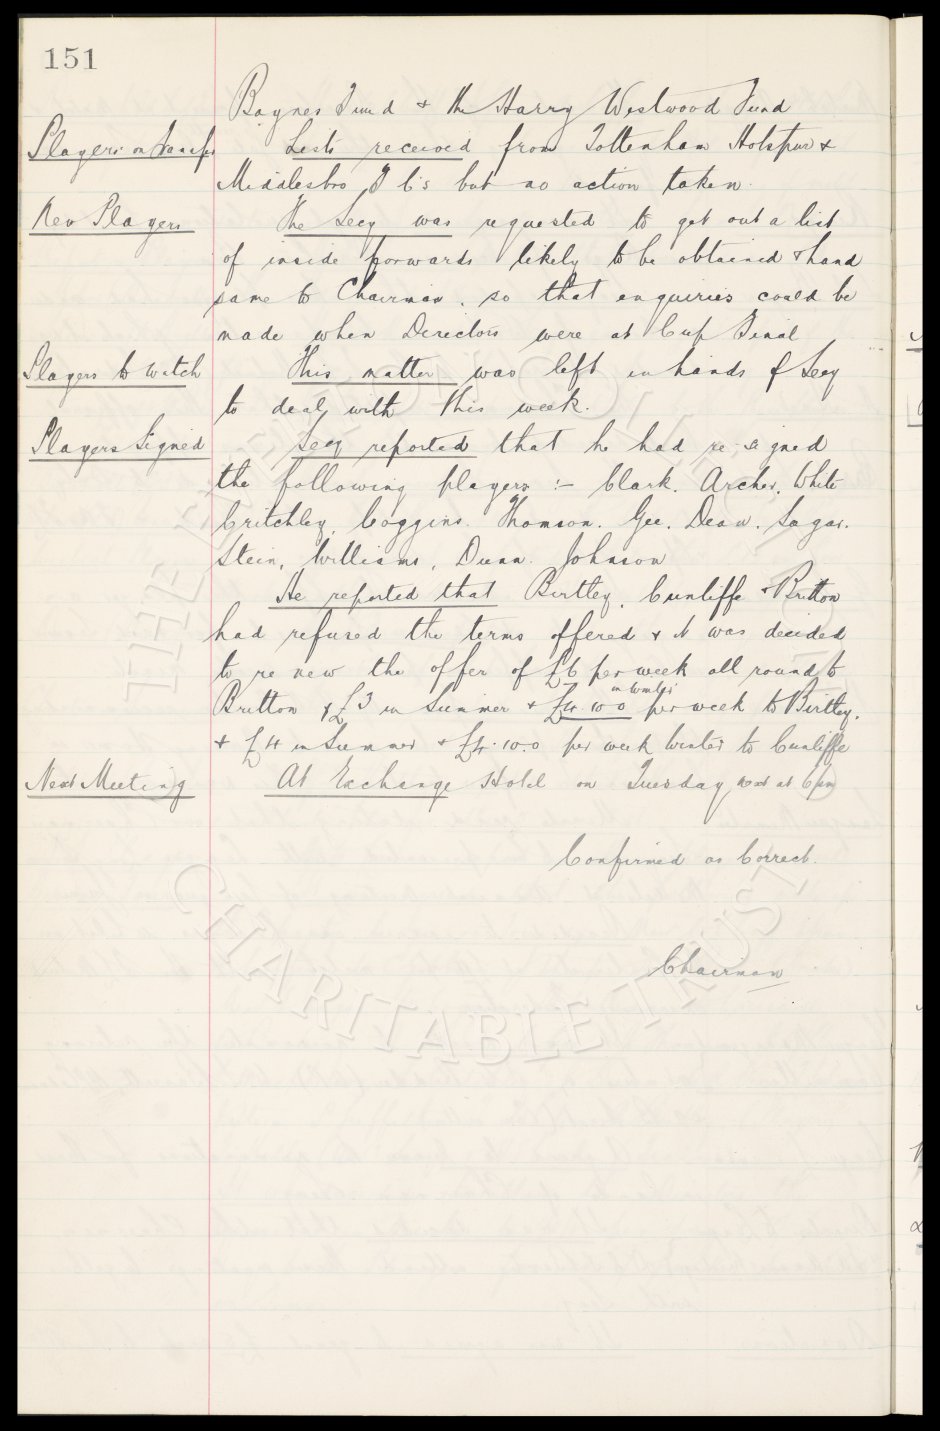 151
Baynes Fund & the Harry Westwood Fund
Players on Transfer Lists received from Tottenham Hotspur &
Middlesbro F C's but no action taken.
New Players The Secy was requested to get out a list
of inside forwards likely to be obtained & hand
same to Chairman, so that enquiries could be
made when Directors were at Cup Final
Players to Watch This matter was left in hands of Secy
to deal with this week.
Players Signed Secy reported that he had re-signed
the following players :- Clark. Archer. White
Critchley. Coggins. Thomson. Gee. Dean. Sagar.
Stein. Williams. Dunn. Johnson
He reported that Birtley. Cunliffe & Britton
had refused the terms offered & it was decided
to re new the offer of £6 per week all round to
in Winter
Britton & £3 in Summer & £4 10 0 per week to Birtley.
& £4 in Summer & £4.10.0 per week Winter to Cunliffe
Next Meeting At Exchange Hotel on Tuesday next at 6 pm
Confirmed as Correct.
Chairman
THE EVERTON COLLECTION
CHARITABLE TRUST